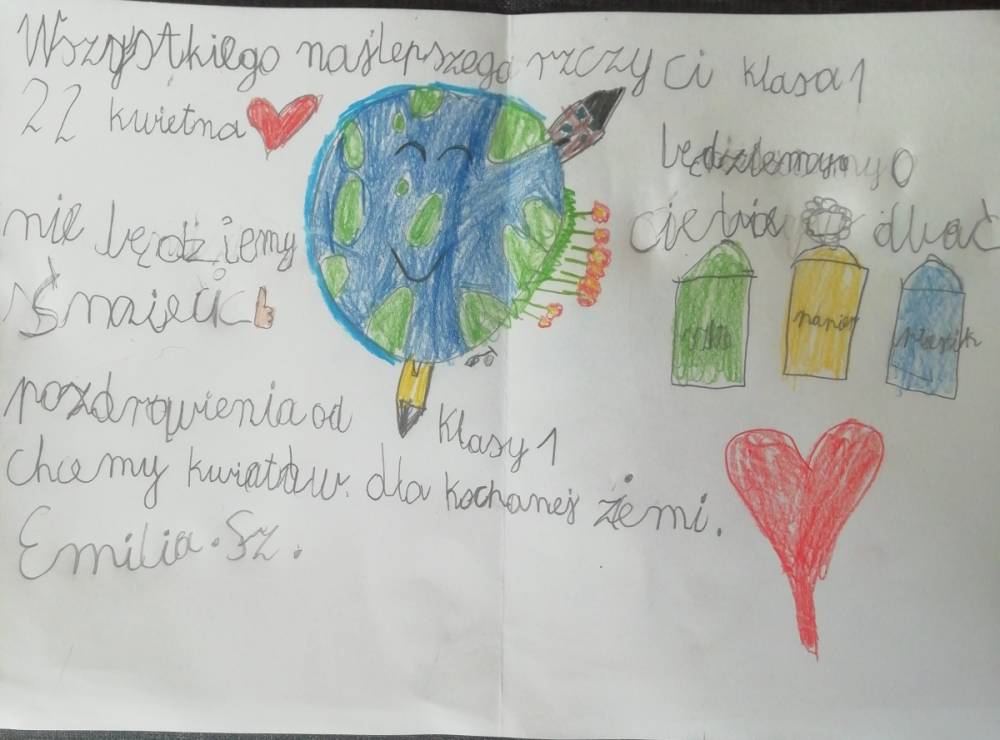 Wszystkiego najlepszego rzczy ci klasa 1
22 kwietna
będziemy o
ciebie dbać
nie będziemy
śmiecić
szkło
papier
plastik
pozdrawienia od klasy 1
chcemy kwiatów dla kochanej źemi.
Emilia. Sz.